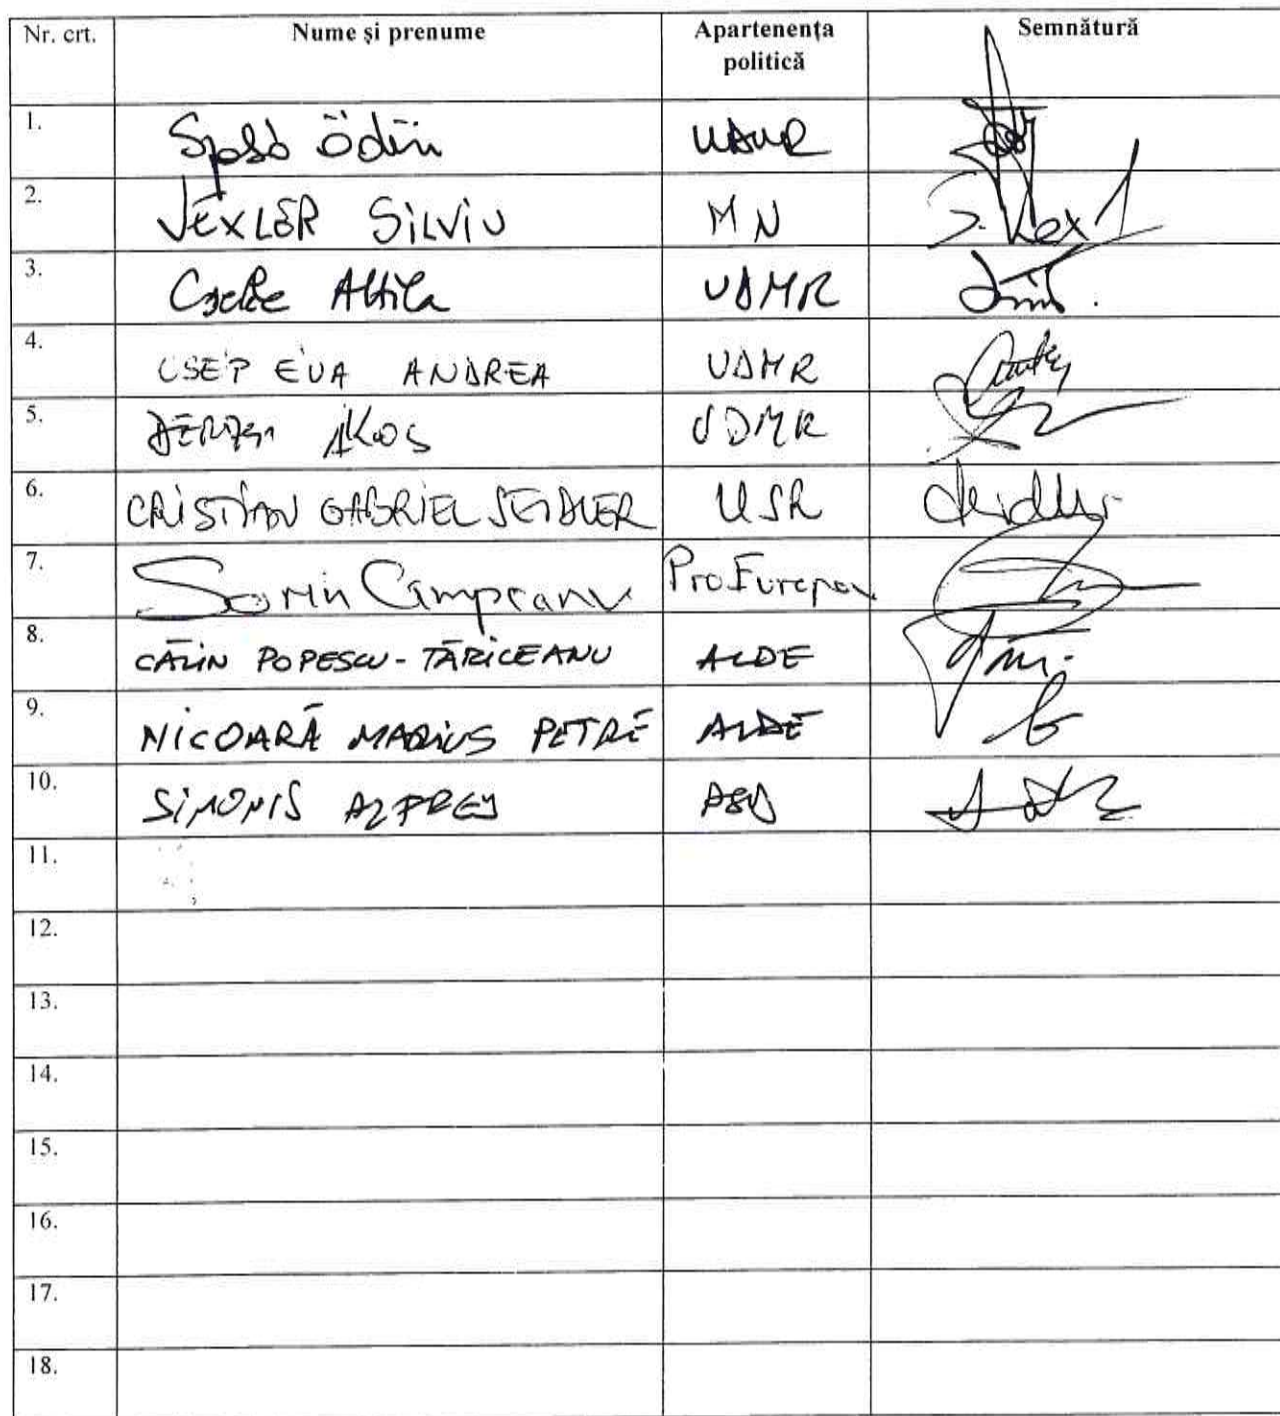 Nr. crt. Nume și prenume Apartenența politică Semnătură
1. Szabó Ödön UDMR
2. VEXLER SILVIU MN
3. Cseke Attila UDMR
4. CSEP EVA ANDREA UDMR
5. AKOS UDMR
6. CRISTIAN GABRIEL SEIDLER USR
7. Sorin Cimpeanu Pro Europa
8. CĂLIN POPESCU-TĂRICEANU ALDE
9. NICOARĂ MARIUS PETRE ALDE
10. SIMONIS ALFRED PSD
11.
12.
13.
14.
15.
16.
17.
18.